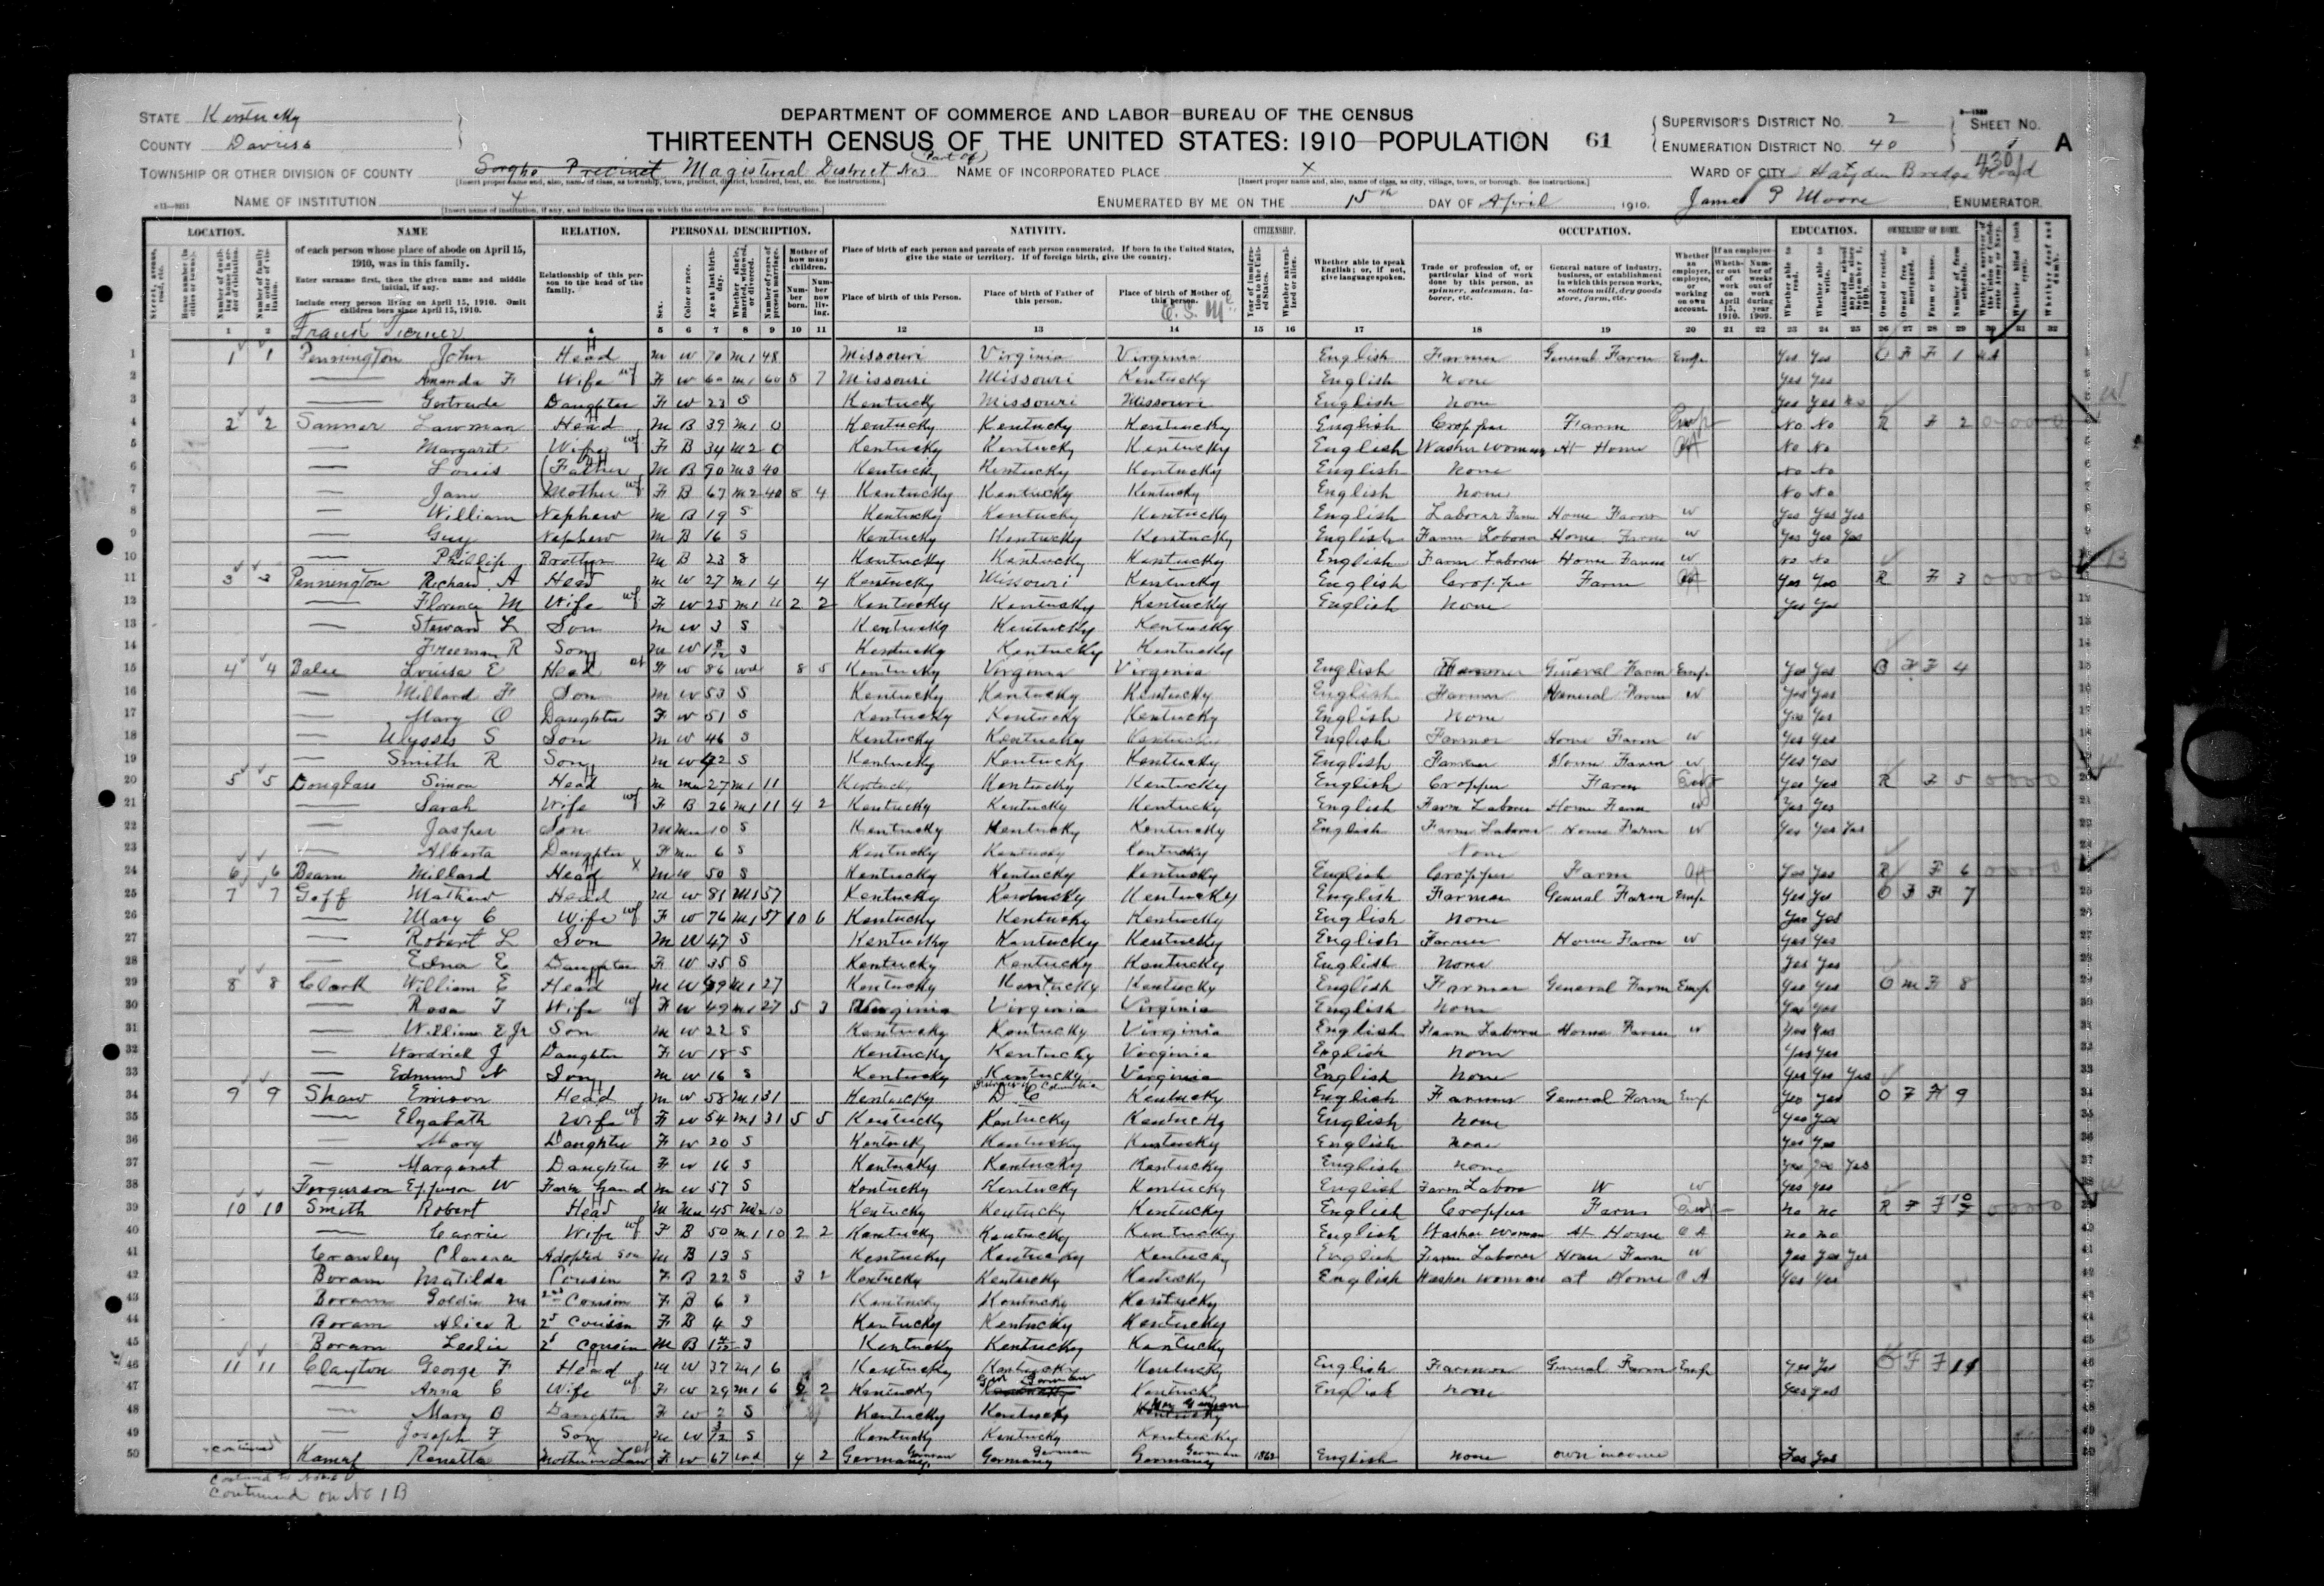 DEPARTMENT OF COMMERCE AND LABOR—BUREAU OF THE CENSUS
THIRTEENTH CENSUS OF THE UNITED STATES: 1910—POPULATION
61
STATE Kentucky
COUNTY Daviess
SUPERVISOR'S DISTRICT NO. 2
ENUMERATION DISTRICT NO. 40
SHEET NO. 1 A
4301
TOWNSHIP OR OTHER DIVISION OF COUNTY Sorgho Precinct Magisterial District No (Part of)
NAME OF INCORPORATED PLACE X
WARD OF CITY X Hayden Bridge Road
NAME OF INSTITUTION X
ENUMERATED BY ME ON THE 15th DAY OF April, 1910.
James P Moore ENUMERATOR.
LOCATION. NAME RELATION. PERSONAL DESCRIPTION. NATIVITY. CITIZENSHIP. OCCUPATION. EDUCATION. OWNERSHIP OF HOME.
of each person whose place of abode on April 15, 1910, was in this family.
Enter surname first, then the given name and middle initial, if any.
Include every person living on April 15, 1910. Omit children born since April 15, 1910.
Relationship of this person to the head of the family.
Place of birth of each person and parents of each person enumerated. If born in the United States, give the state or territory. If of foreign birth, give the country.
Place of birth of this Person. Place of birth of Father of this person. Place of birth of Mother of this person.
Whether able to speak English; or, if not, give language spoken.
Trade or profession of, or particular kind of work done by this person, as spinner, salesman, laborer, etc.
General nature of industry, business, or establishment in which this person works, as cotton mill, dry goods store, farm, etc.
1 2 4 5 6 7 8 9 10 11 12 13 14 15 16 17 18 19 20 21 22 23 24 25 26 27 28 29 30 31 32
1 1 1 Pennington John Head M W 70 M1 48 Missouri Virginia Virginia English Farmer General Farm Emp Yes Yes O F F 1 UA
2 Amanda F Wife F W 60 M1 8 7 Missouri Missouri Kentucky English None Yes Yes
3 Gertrude Daughter F W 23 S Kentucky Missouri Missouri English None Yes Yes No
4 2 2 Sanner Lawman Head M B 39 M1 0 Kentucky Kentucky Kentucky English Cropper Farm No No R F 2
5 Margaret Wife F B 34 M2 0 Kentucky Kentucky Kentucky English Washer woman At Home No No
6 Louis Father M B 90 M3 40 Kentucky Kentucky Kentucky English None No No
7 Jane Mother F B 67 M2 40 5 4 Kentucky Kentucky Kentucky English None No No
8 William Nephew M B 19 S Kentucky Kentucky Kentucky English Laborer Farm Home Farm W Yes Yes Yes
9 Guy Nephew M B 16 S Kentucky Kentucky Kentucky English Farm Laborer Home Farm W Yes Yes Yes
10 Phillip Brother M B 23 S Kentucky Kentucky Kentucky English Farm Laborer Home Farm W No No
11 3 3 Pennington Richard A Head M W 27 M1 4 4 Kentucky Missouri Kentucky English Cropper Farm Yes Yes R F 3
12 Florence M Wife F W 25 M1 4 2 2 Kentucky Kentucky Kentucky English None Yes Yes
13 Steward L Son M W 3 S Kentucky Kentucky Kentucky
14 Freeman R Son M W 1 8/12 S Kentucky Kentucky Kentucky
15 4 4 Balee Louisa E Head F W 86 Wd 8 5 Kentucky Virginia Virginia English Farmer General Farm Emp Yes Yes O F F 4
16 Millard F Son M W 53 S Kentucky Kentucky Kentucky English Farmer General Farm W Yes Yes
17 Mary O Daughter F W 51 S Kentucky Kentucky Kentucky English None Yes Yes
18 Ulysses S Son M W 46 S Kentucky Kentucky Kentucky English Farmer Home Farm W Yes Yes
19 Smith R Son M W 42 S Kentucky Kentucky Kentucky English Farmer Home Farm W Yes Yes
20 5 5 Douglass Simon Head M Mu 27 M1 11 Kentucky Kentucky Kentucky English Cropper Farm Yes Yes R F 5
21 Sarah Wife F B 26 M1 11 4 2 Kentucky Kentucky Kentucky English Farm Laborer Home Farm W Yes Yes
22 Jasper Son M Mu 10 S Kentucky Kentucky Kentucky English Farm Laborer Home Farm W Yes Yes Yes
23 Alberta Daughter F Mu 6 S Kentucky Kentucky Kentucky None
24 6 6 Beam Millard Head M W 50 S Kentucky Kentucky Kentucky English Cropper Farm Yes Yes R F 6
25 7 7 Goff Mathew Head M W 81 M1 57 Kentucky Kentucky Kentucky English Farmer General Farm Emp Yes Yes O F F 7
26 Mary C Wife F W 76 M1 57 10 6 Kentucky Kentucky Kentucky English None Yes Yes
27 Robert L Son M W 47 S Kentucky Kentucky Kentucky English Farmer Home Farm W Yes Yes
28 Edna E Daughter F W 35 S Kentucky Kentucky Kentucky English None Yes Yes
29 8 8 Clark William E Head M W 49 M1 27 Kentucky Kentucky Kentucky English Farmer General Farm Emp Yes Yes O M F 8
30 Rosa T Wife F W 49 M1 27 5 3 Virginia Virginia Virginia English None Yes Yes
31 William E Jr Son M W 22 S Kentucky Kentucky Virginia English Farm Laborer Home Farm W Yes Yes
32 Wordrick J Daughter F W 18 S Kentucky Kentucky Virginia English None Yes Yes
33 Edmund N Son M W 16 S Kentucky Kentucky Virginia English None Yes Yes Yes
34 9 9 Shaw Emison Head M W 58 M1 31 Kentucky D C Kentucky English Farmer General Farm Emp Yes Yes O F F 9
35 Elyabath Wife F W 54 M1 31 5 5 Kentucky Kentucky Kentucky English None Yes Yes
36 Mary Daughter F W 20 S Kentucky Kentucky Kentucky English None Yes Yes
37 Margaret Daughter F W 16 S Kentucky Kentucky Kentucky English None Yes Yes Yes
38 Forgurson Epperson W Farm Hand M W 57 S Kentucky Kentucky Kentucky English Farm Labore W W Yes Yes
39 10 10 Smith Robert Head M Mu 45 M2 10 Kentucky Kentucky Kentucky English Cropper Farm No No R F F 10
40 Carrie Wife F B 50 M1 10 2 2 Kentucky Kentucky Kentucky English Washer woman At Home O A No No
41 Crawley Clarence Adopted son M B 13 S Kentucky Kentucky Kentucky English Farm Laborer Home Farm W Yes Yes Yes
42 Boram Matilda Cousin F B 22 S 3 2 Kentucky Kentucky Kentucky English Washer woman at Home O A Yes Yes
43 Boram Goldie M 2nd Cousin F B 6 S Kentucky Kentucky Kentucky
44 Boram Alice R 2d Cousin F B 4 S Kentucky Kentucky Kentucky
45 Boram Leslie 2d Cousin M B 1 S Kentucky Kentucky Kentucky
46 11 11 Clayton George F Head M W 37 M1 6 Kentucky Kentucky Kentucky English Farmer General Farm Emp Yes Yes O F F 11
47 Anna C Wife F W 29 M1 6 2 2 Kentucky Ger German Kentucky English None Yes Yes
48 Mary B Daughter F W 2 S Kentucky Kentucky Kentucky
49 Joseph F Son M W S Kentucky Kentucky Kentucky
50 continued Kamuf Renetta Mother in Law F W 67 Wd 4 2 Germany German Germany German Germany German 1862 English None own income Yes Yes
Continued on No 1 B